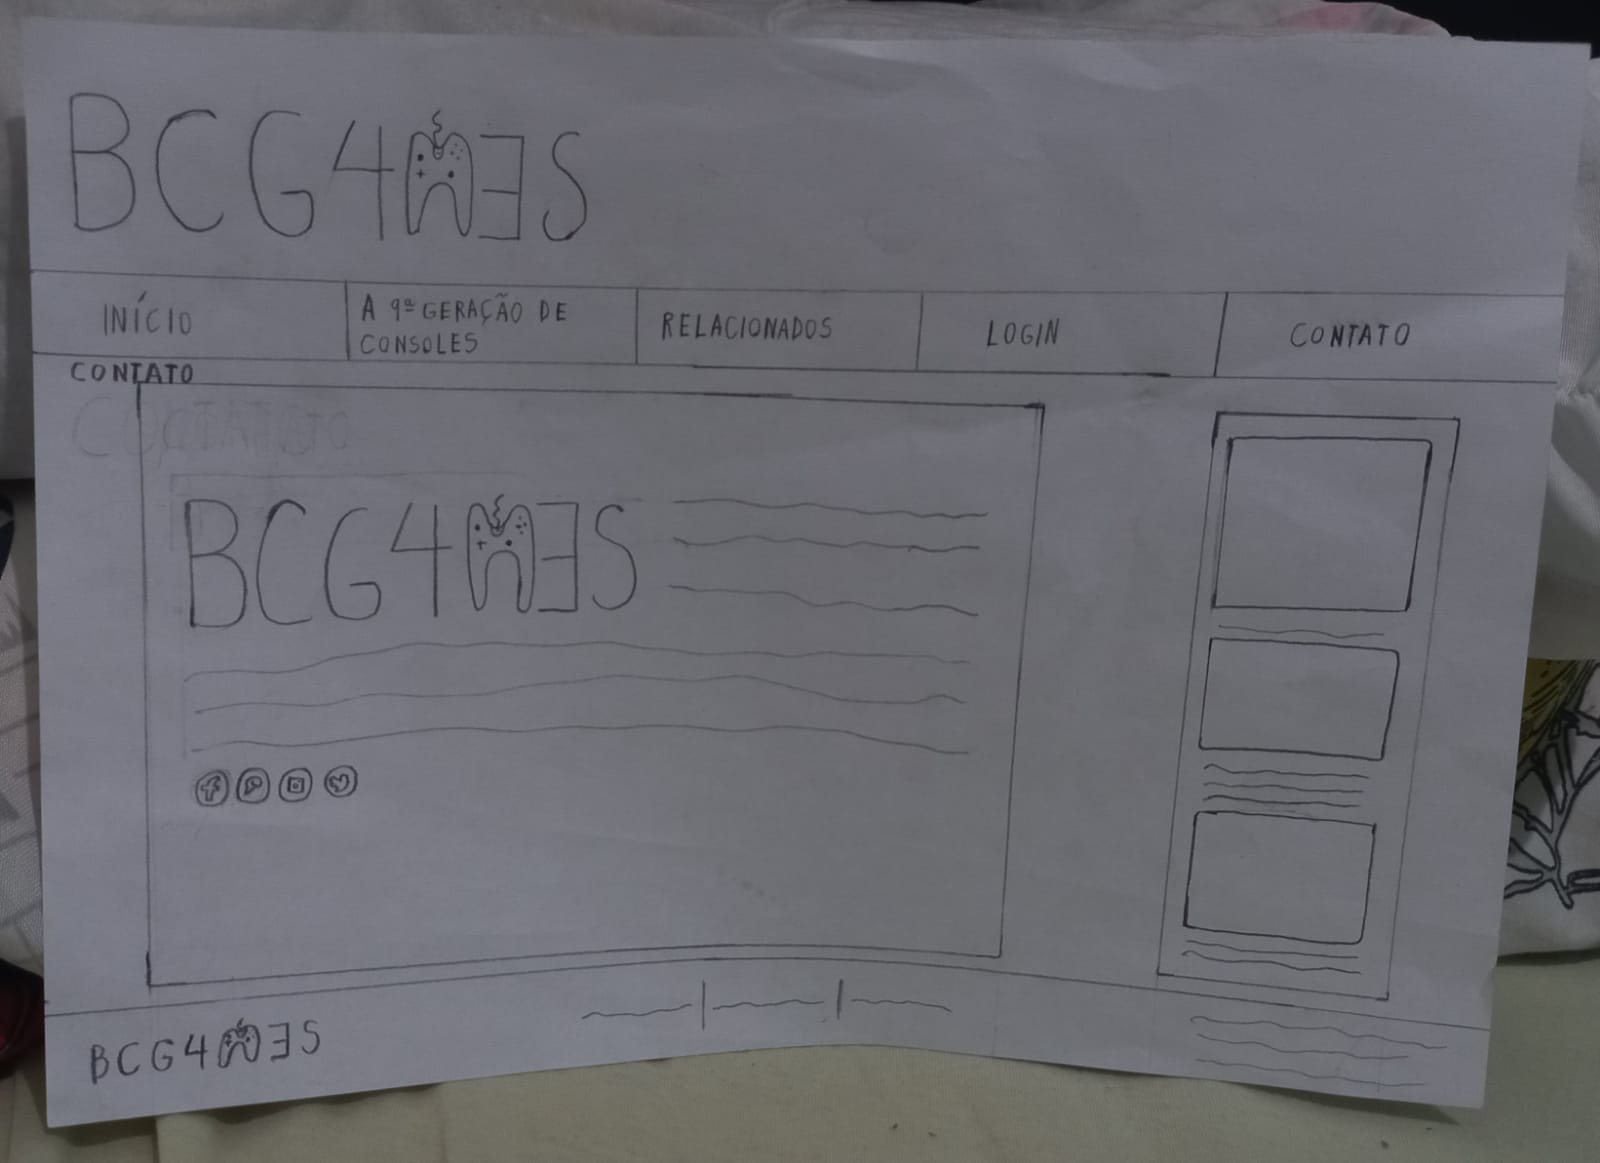 BCG4MƎS
INÍCIO
A 9ª GERAÇÃO DE
CONSOLES
RELACIONADOS
LOGIN
CONTATO
CONTATO
BCG4MƎS
BCG4MƎS